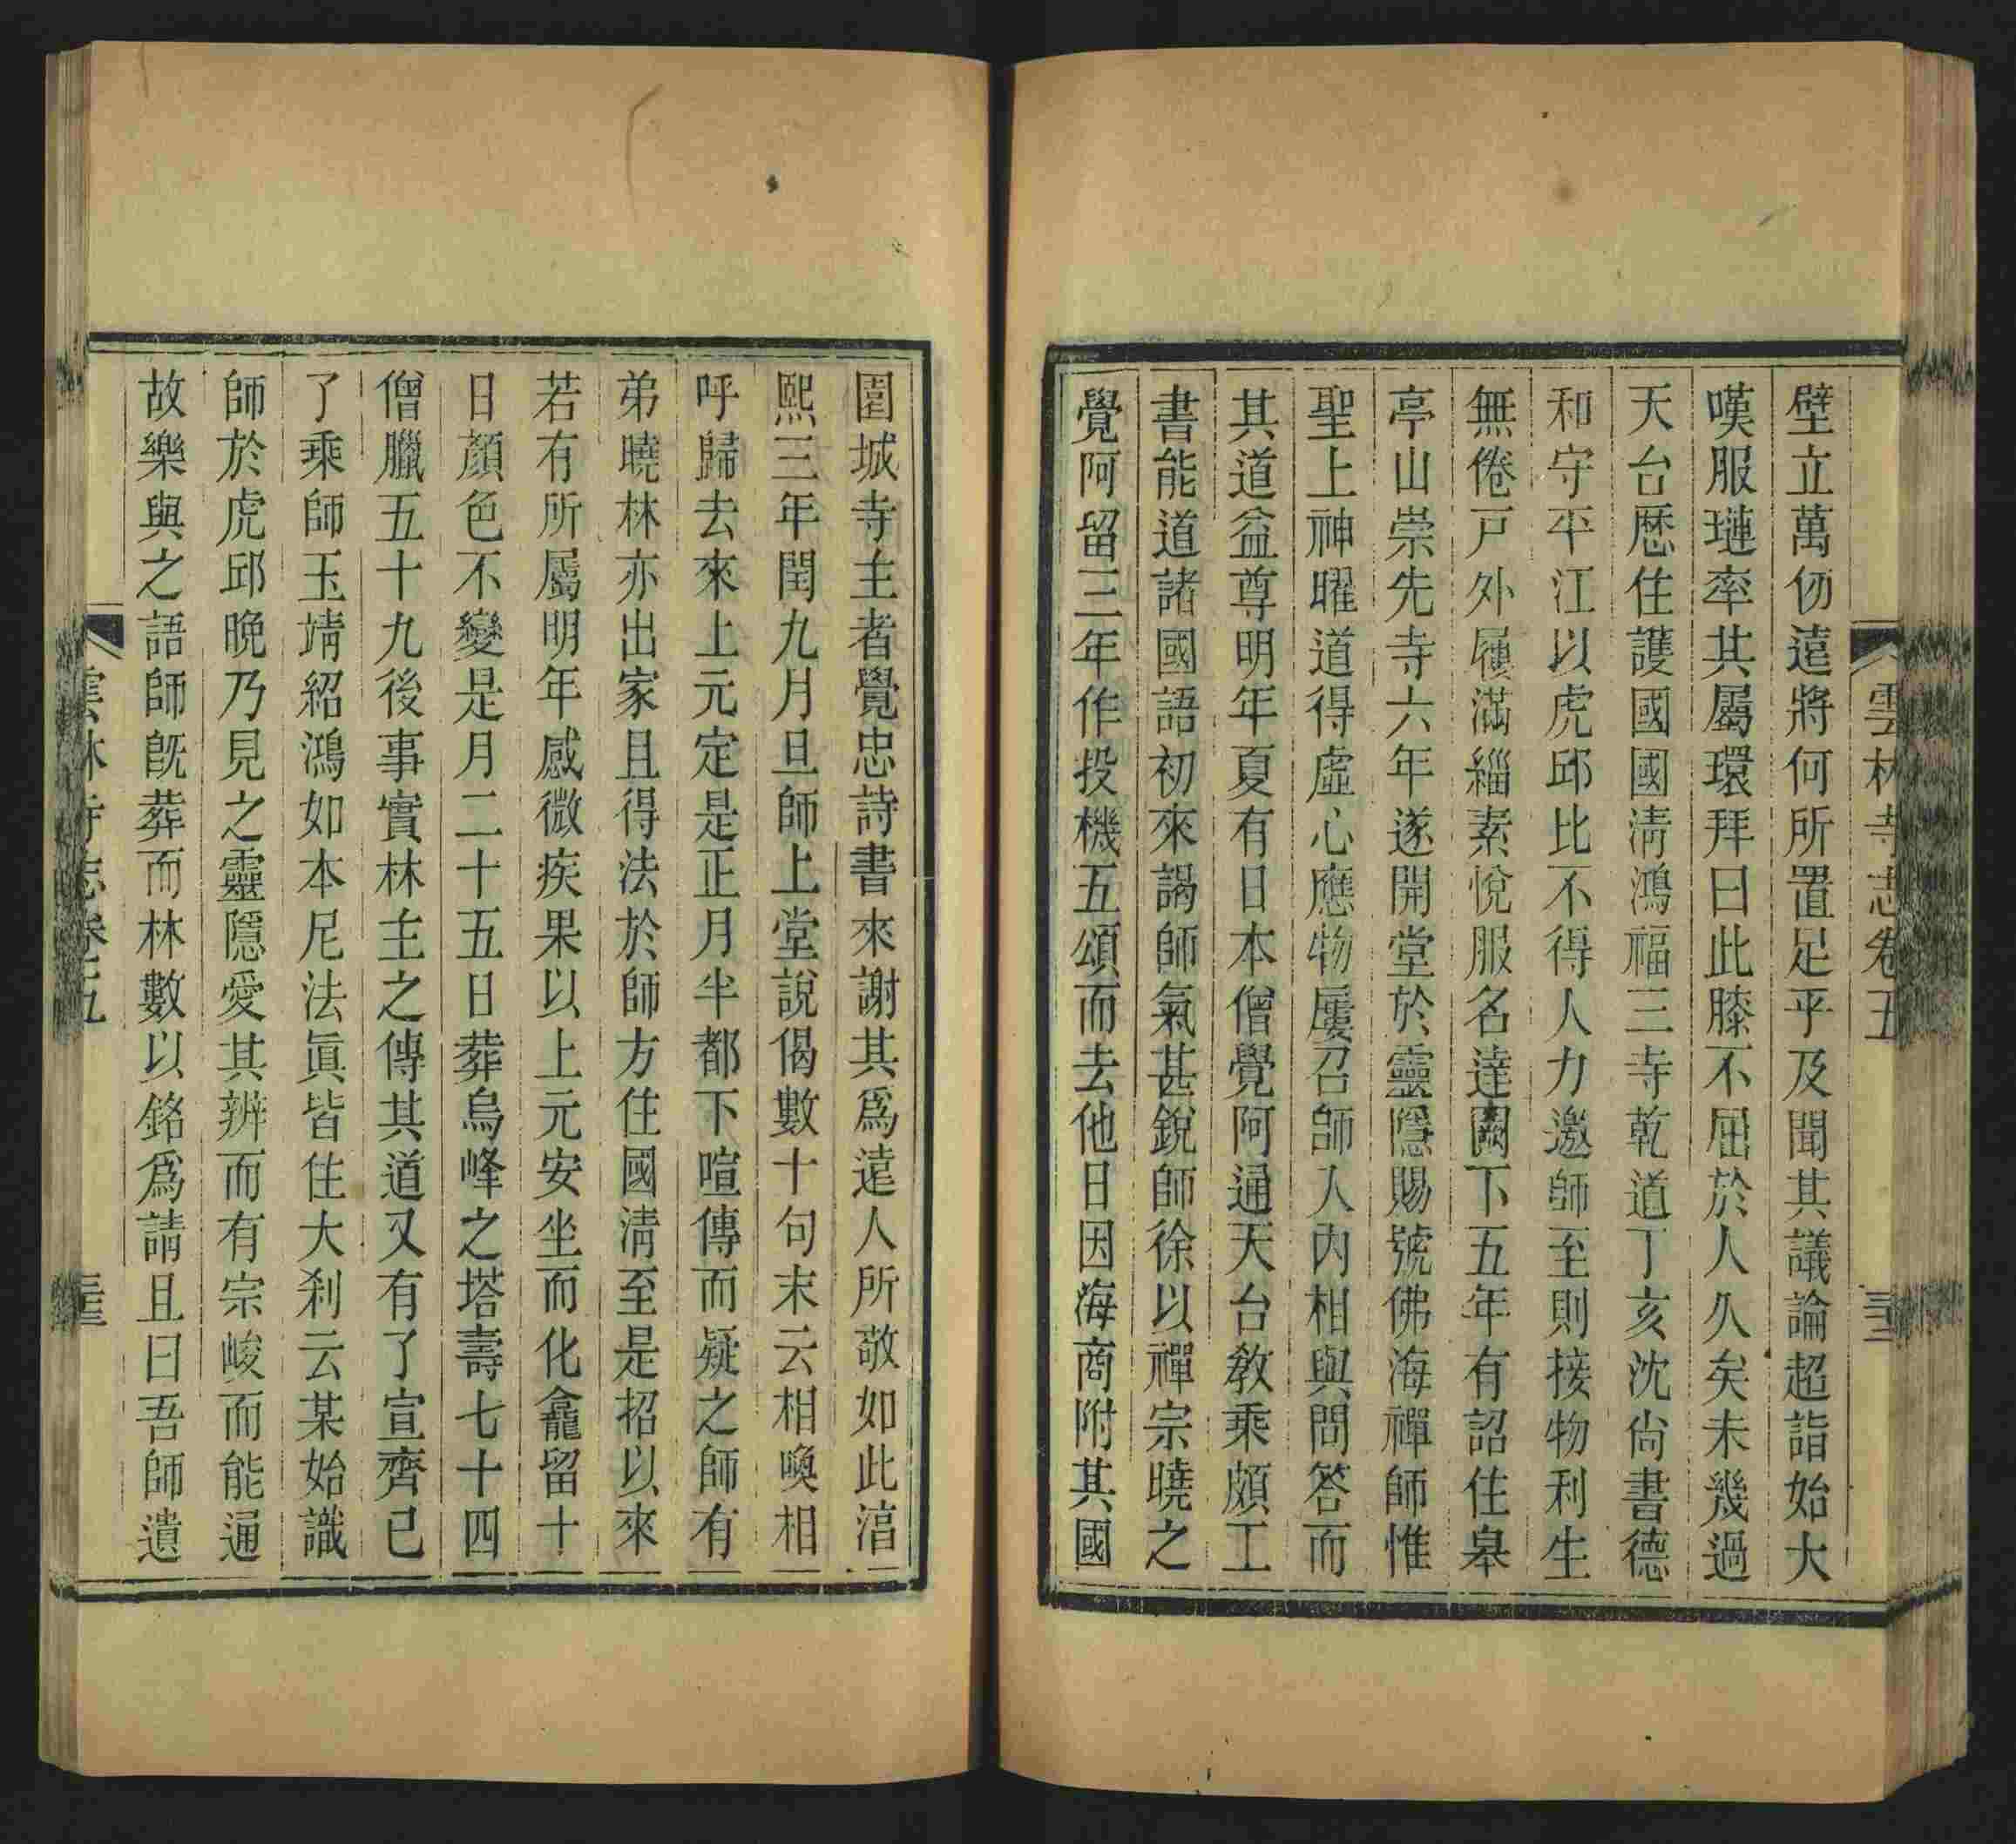 雲林寺志卷五
壁立萬仞遠將何所置足乎及聞其議論超詣始大
嘆服璉率其屬環拜曰此膝不屈於人久矣未幾過
天台歷住護國國清鴻福三寺乾道丁亥沈尙書德
和守平江以虎邱比不得人力邀師至則接物利生
無倦戸外屨滿緇素悅服名達闕下五年有詔住皋
亭山崇先寺六年遂開堂於靈隱賜號佛海禪師惟
聖上神曜道得虛心應物屢召師入內相與問答而
其道益尊明年夏有日本僧覺阿通天台敎乘頗工
書能道諸國語初來謁師氣甚銳師徐以禪宗曉之
覺阿留三年作投機五頌而去他日因海商附其國
圓城寺主者覺忠詩書來謝其爲遠人所敬如此湻
熙三年閏九月旦師上堂說偈數十句末云相喚相
呼歸去來上元定是正月半都下喧傳而疑之師有
弟曉林亦出家且得法於師方住國淸至是招以來
若有所屬明年感微疾果以上元安坐而化龕留十
日顏色不變是月二十五日葬烏峰之塔壽七十四
僧臘五十九後事實林主之傳其道又有了宣齊已
了乘師玉靖紹鴻如本尼法眞皆住大刹云某始識
師於虎邱晚乃見之靈隱愛其辨而有宗峻而能通
故樂與之語師旣葬而林數以銘爲請且曰吾師遺
雲林寺志卷五